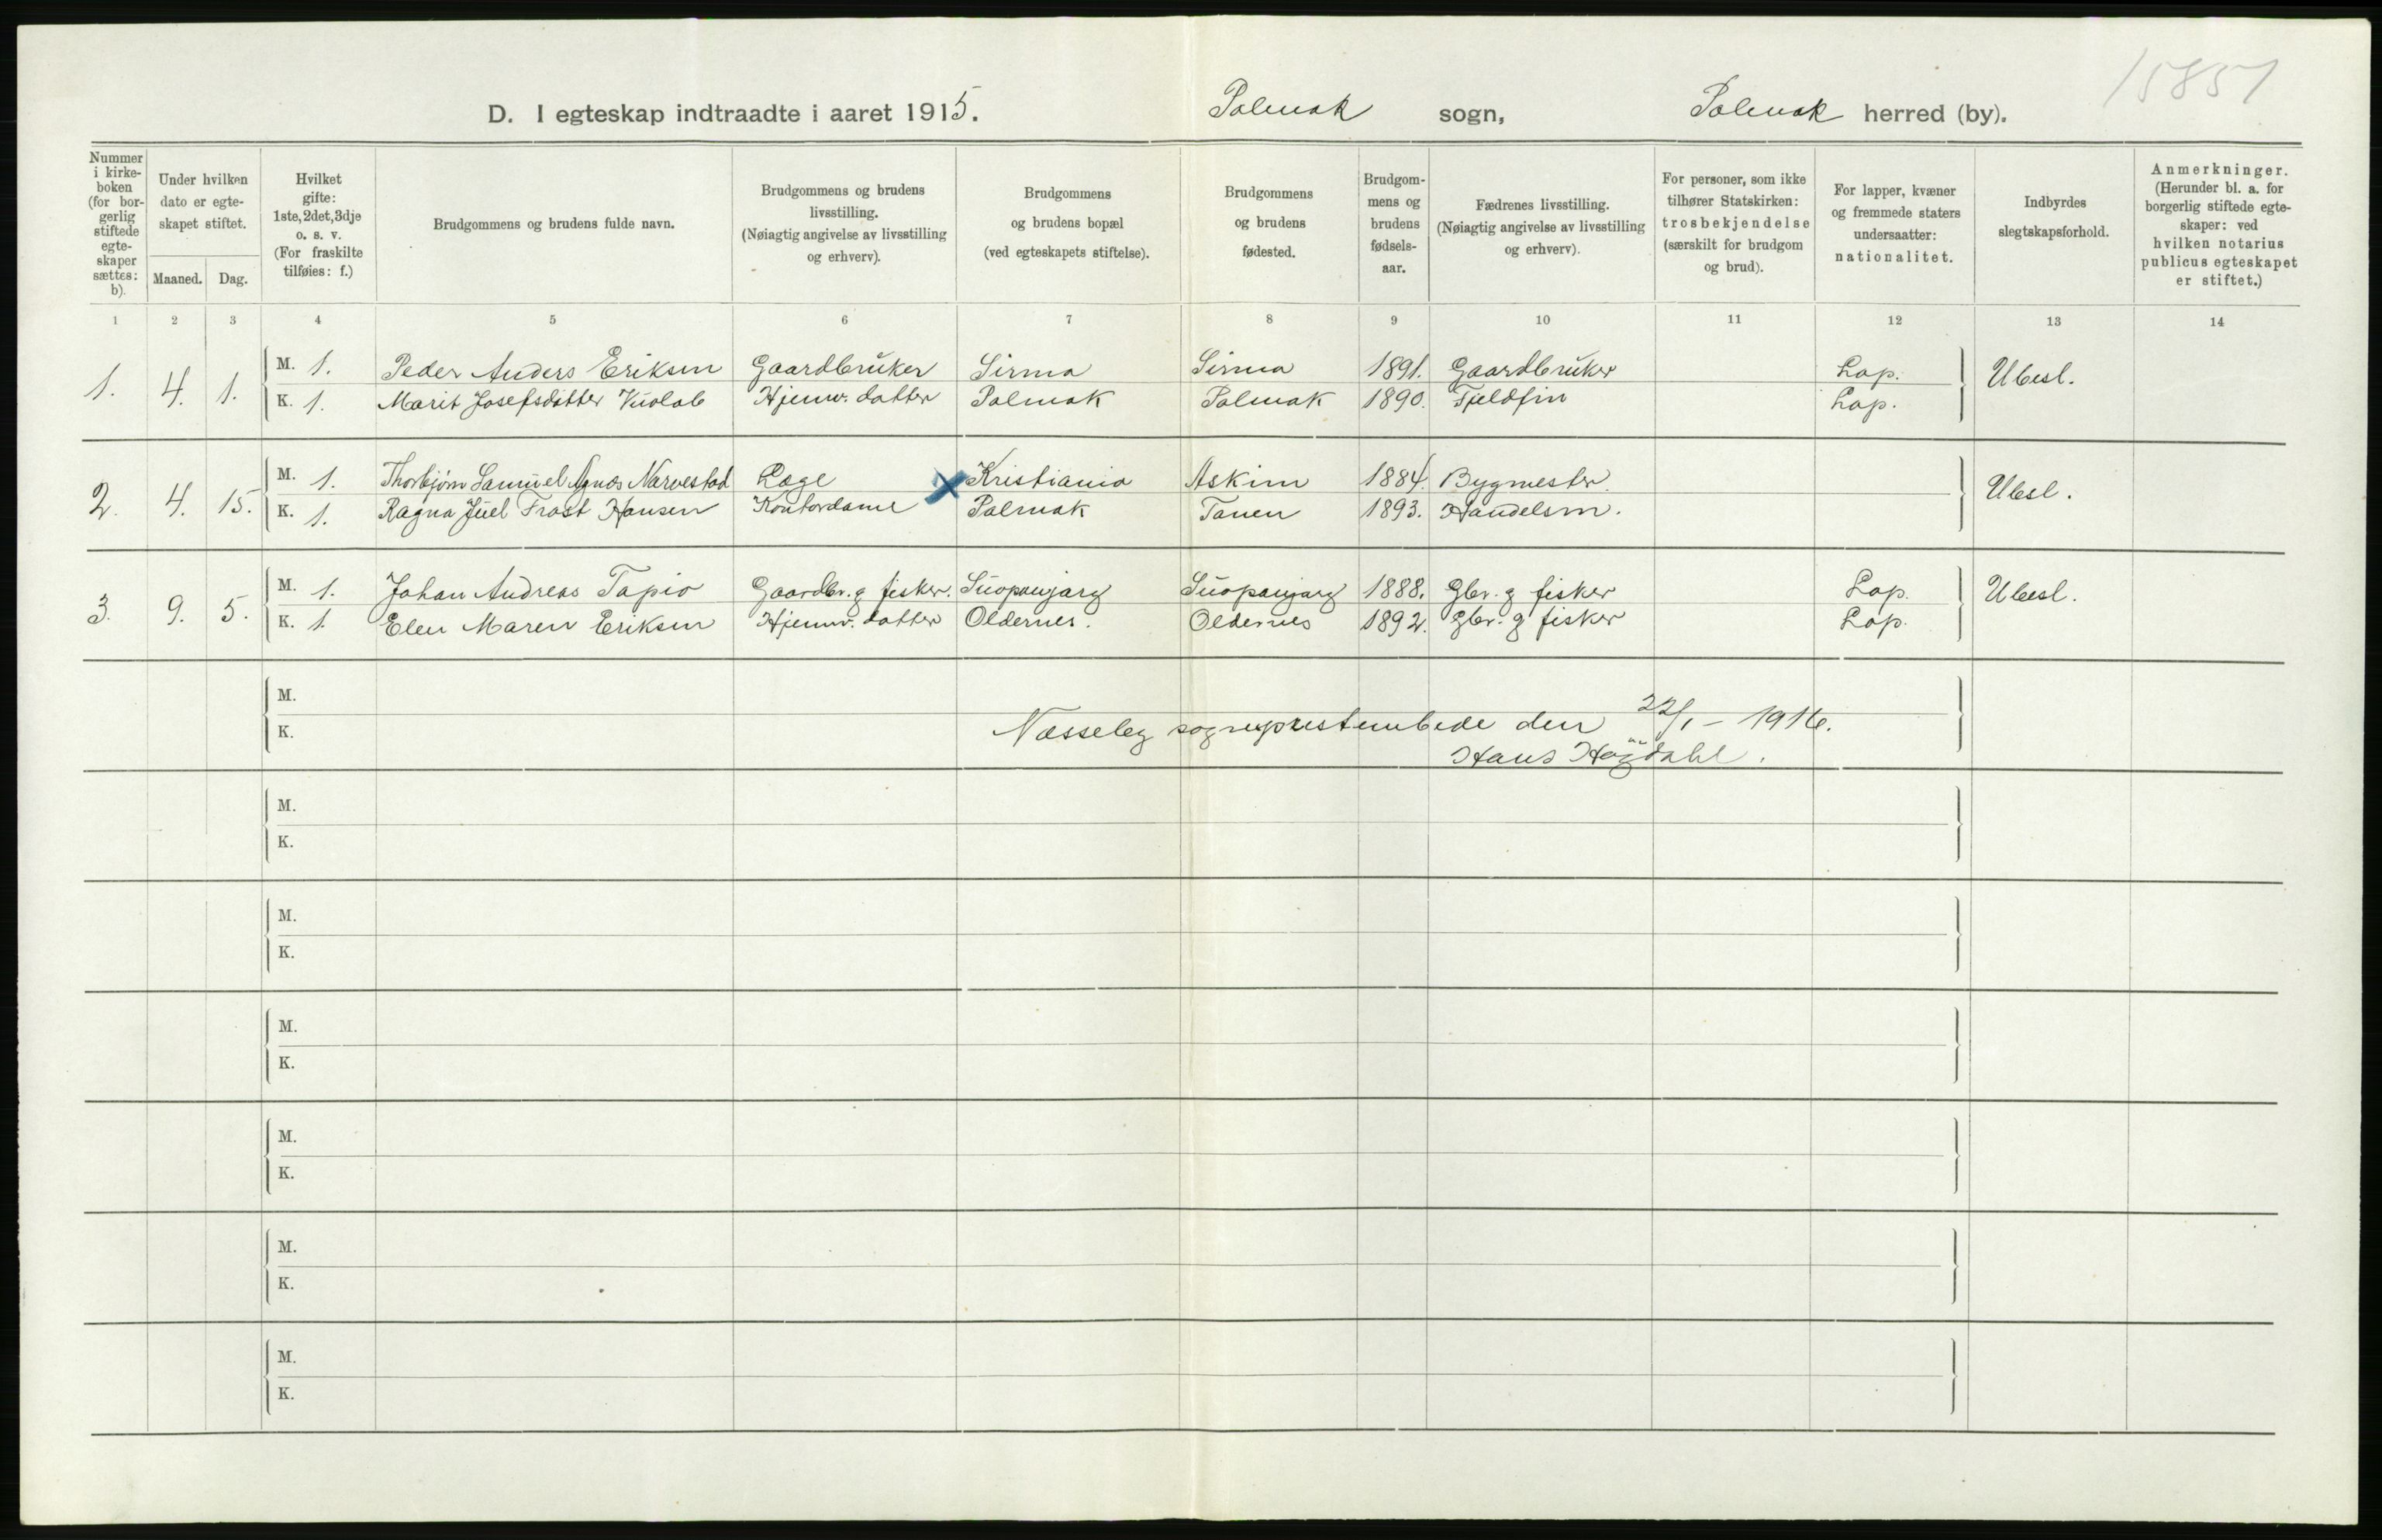 15851
D. I egteskap indtraadte i aaret 1915. Polmak sogn, Polmak herred (by).
Nummer i kirkeboken (for borgerlig stiftede egteskaper sættes: b).
Under hvilken dato er egteskapet stiftet.
Maaned. Dag.
Hvilket gifte: 1ste, 2det, 3dje o. s. v. (For fraskilte tilføies: f.)
Brudgommens og brudens fulde navn.
Brudgommens og brudens livsstilling. (Nøiagtig angivelse av livsstilling og erhverv).
Brudgommens og brudens bopæl (ved egteskapets stiftelse).
Brudgommens og brudens fødested.
Brudgommens og brudens fødselsaar.
Fædrenes livsstilling. (Nøiagtig angivelse av livsstilling og erhverv).
For personer, som ikke tilhører Statskirken: trosbekjendelse (særskilt for brudgom og brud).
For lapper, kvæner og fremmede staters undersaatter: nationalitet.
Indbyrdes slegtskapsforhold.
Anmerkninger. (Herunder bl. a. for borgerlig stiftede egteskaper: ved hvilken notarius publicus egteskapet er stiftet.)
1 2 3 4 5 6 7 8 9 10 11 12 13 14
1. 4. 1. M. 1. Peder Anders Eriksen Gaardbruker Sirma Sirma 1891. Gaardbruker Lap. Ubesl.
K. 1. Marit Josefsdatter Vuolab Hjemv. datter Polmak Polmak 1890. Fjeldfin Lap.
2. 4. 15. M. 1. Thorbjørn Samuel Agnæs Narvestad Læge Kristiania Askim 1884. Bygmester. Ubesl.
K. 1. Ragna Juel Frost Hansen Kontordame Polmak Tanen 1893. Handelsm.
3. 9. 5. M. 1. Johan Andreas Tapio Gaardbr. g fisker. Suopanjarg Suopanjarg 1888. Gbr. g fisker Lap. Ubesl.
K. 1. Elen Maren Eriksen Hjemv. datter Oldernes. Oldernes 1892. Gbr. g fisker Lap.
M.
K.
Næsseby sogneprestembede den 22/1 - 1916.
Hans Høgdahl.
M.
K.
M.
K.
M.
K.
M.
K.
M.
K.
M.
K.